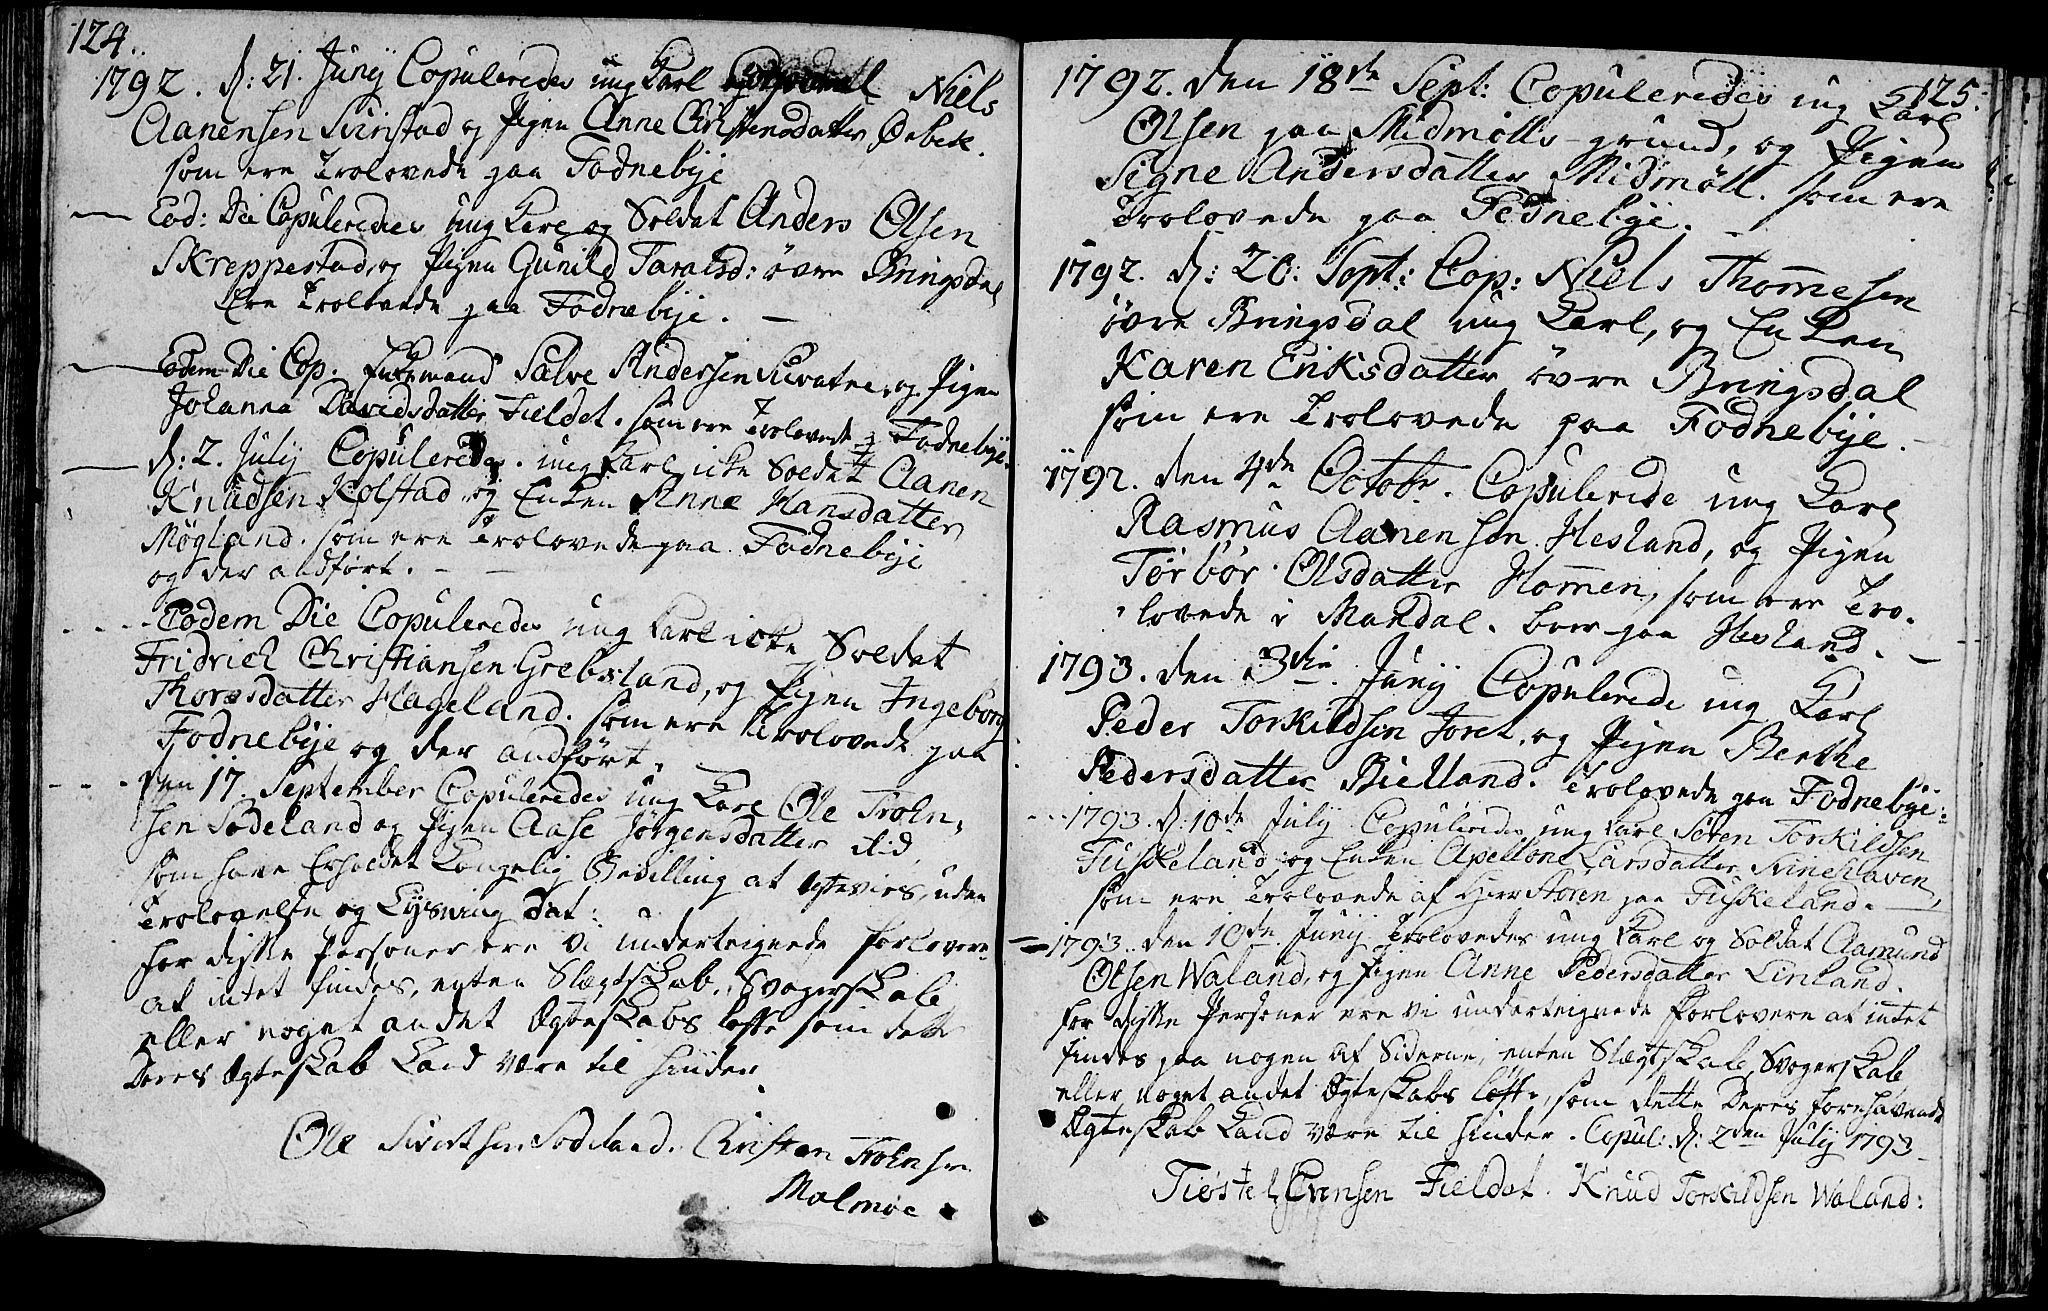 124.
1792. d: 21. Junij Copuleredes ung Karl Niels
Aanensen Sunstad og Pigen Anne ChristensdatterØrbek.
som ere Trolovede paa Fodnebÿe
Eod: Die Copuleredes ung Karl og Soldat Anders Olsen
Skreppestad, og Pigen Gunild Taralsd: øvre Bringsdal
Ere Trolovede paa Fodnebÿe. —
Eodem Die Cop. Enkemand Salve Andersen Sivatne, og Pigen
Johanna Davidsdatter Fieldet. som ere Trolovede Fodnebÿe.
d: 2. Julij Copuleredes. ung Karl icke Soldat Aanen
Knudsen Kolstad, og Enken Anne Hansdatter
Møgland. som ere Trolovede paa Fodnebÿe
og der anført. —
Eodem Die Copuleredes ung Karl icke Soldat
Fridrich Christiansen Grebsland, og Pigen Ingeborg
Thoresdatter Hageland. som ere Trolovede paa
Fodnebÿe og der anført.
den 17. September Copuleredes ung Karl Ole Troln,
sen Sodeland og Pigen Aase Jørgensdatter ibid,
som have Erholdet Kongelig Bevilling at Egtevies, uden
Trolovelse og Lysning dat:
For disse Personer ere vi underteignede forlovere
at intet findes, enten Slægtskab, Svogerskab
eller noget andet Ægteskabs løfte som dette
Deres Ægteskab Kand være til hinder
Ole Sivertsen Sodeland. Christen Trolnsen
Malmøe.
125.
1792. den 18de Sept: Copuleredes ung Karl
Olsen paa Midmølls-grund, og Pigen
Signe Andersdatter Midmøll. som ere
Trolovede paa Fodnebÿe.
1792. d: 20. Sept: Cop: Niels Thomesen
øvre Bringsdal ung Karl, og Enken
Karen Eriksdatter øvre Bringsdal
som ere Trolovede paa Fodnebÿe.
1792. den 4de Octobr. Copulerede ung Karl
Rasmus Aanensen Hesland, og Pigen
Tørbør Olsdatter Homen, som ere Tro-
lovede i Mandal. boer paa Hesland. —
1793. den 3die. Junij Copulerede ung Karl
Peder Torkildsen Joret, og Pigen Berthe
Pedersdatter Bielland. Trolovede paa Fodnebÿe:
1793. d: 10de Julij Copuleredes ung Karl Søren Torkildsen
Fuskeland, og Enken Apellone Larsdatter Ninehaven,
som ere Trolovede af Herr Støren paa Fuskeland. —
1793. den 10de Junij Trolovedes ung Karl og Soldat Aamund
Olsen Waland, og Pigen Anne Pedersdatter Linland.
for disse Personer ere vi underteignede Forlovere at intet
findes paa nogen af Siderne, enten Slægtskab, Svogerskab
eller noget andet Ægteskabs løfte, som dette Deres forehavende
Ægteskab Kand være til hinder. Copul: d: 2den Julij 1793
Tiøstel Evensen Fieldet. Knud Torkildsen Waland: